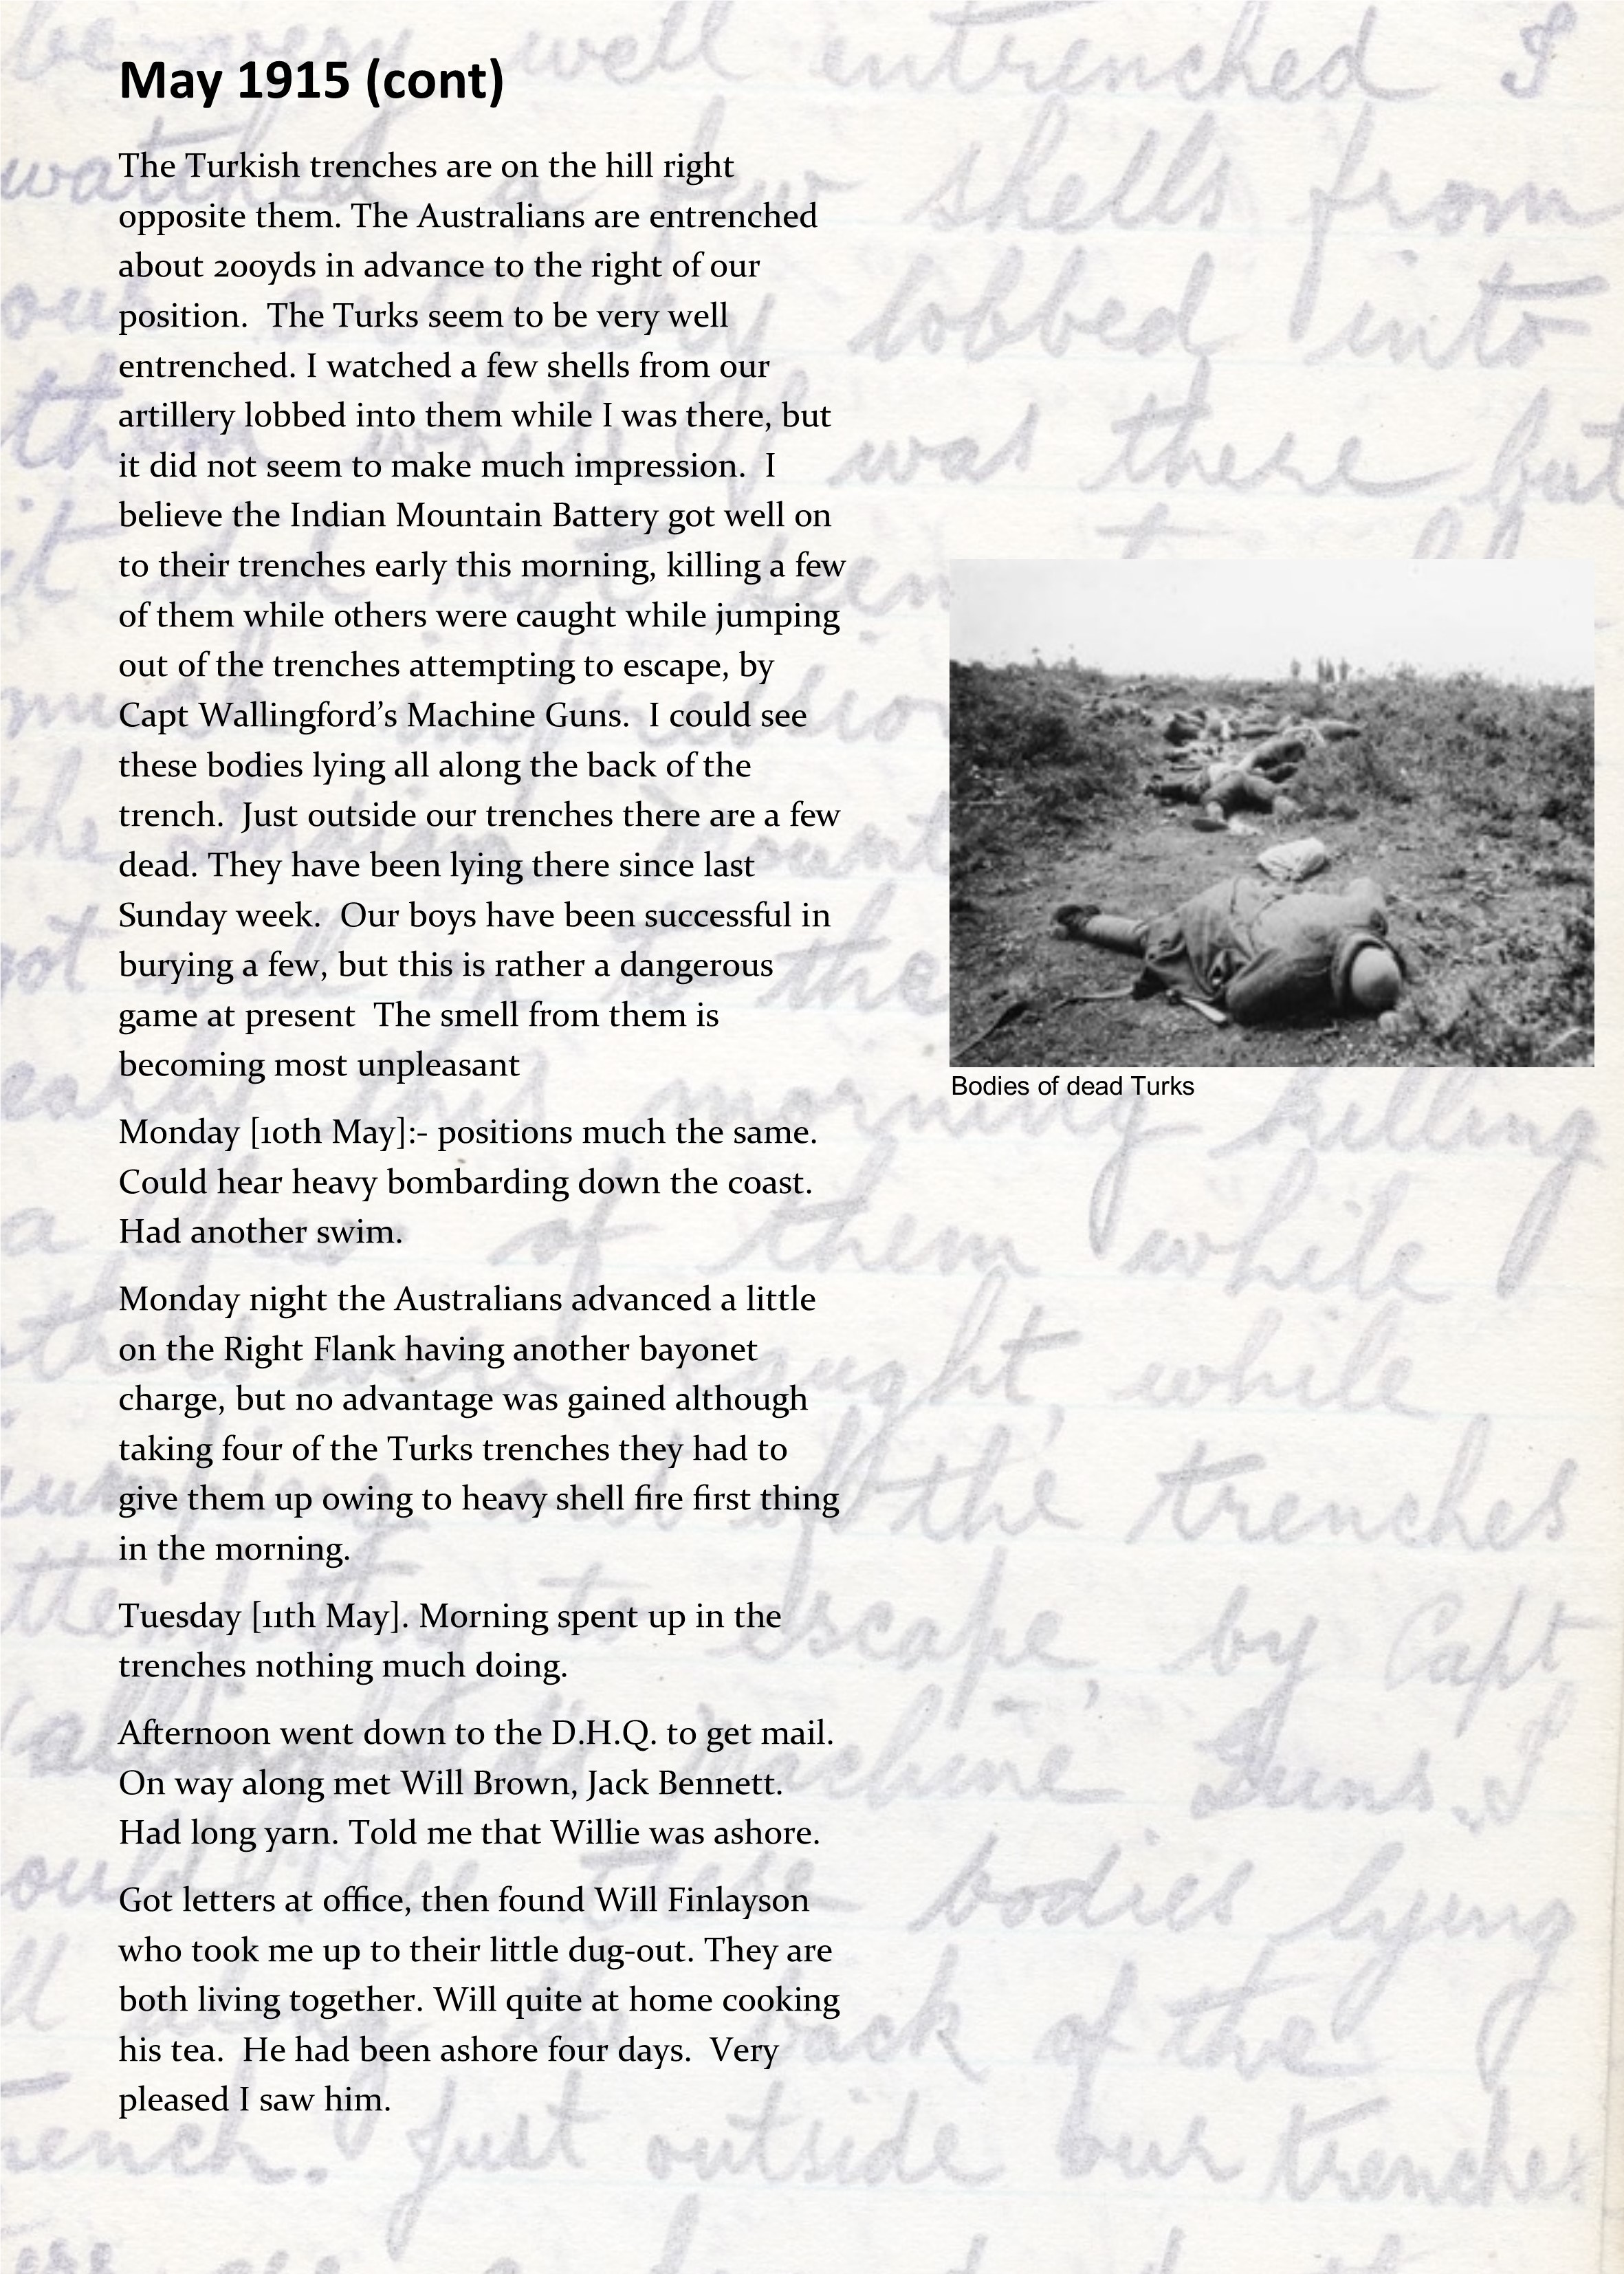 May 1915 (cont)
The Turkish trenches are on the hill right
opposite them. The Australians are entrenched
about 200yds in advance to the right of our
position.  The Turks seem to be very well
entrenched. I watched a few shells from our
artillery lobbed into them while I was there, but
it did not seem to make much impression.  I
believe the Indian Mountain Battery got well on
to their trenches early this morning, killing a few
of them while others were caught while jumping
out of the trenches attempting to escape, by
Capt Wallingford’s Machine Guns.  I could see
these bodies lying all along the back of the
trench.  Just outside our trenches there are a few
dead. They have been lying there since last
Sunday week.  Our boys have been successful in
burying a few, but this is rather a dangerous
game at present  The smell from them is
becoming most unpleasant
Monday [10th May]:- positions much the same.
Could hear heavy bombarding down the coast.
Had another swim.
Monday night the Australians advanced a little
on the Right Flank having another bayonet
charge, but no advantage was gained although
taking four of the Turks trenches they had to
give them up owing to heavy shell fire first thing
in the morning.
Tuesday [11th May]. Morning spent up in the
trenches nothing much doing.
Afternoon went down to the D.H.Q. to get mail.
On way along met Will Brown, Jack Bennett.
Had long yarn. Told me that Willie was ashore.
Got letters at office, then found Will Finlayson
who took me up to their little dug-out. They are
both living together. Will quite at home cooking
his tea.  He had been ashore four days.  Very
pleased I saw him.
Bodies of dead Turks
be very well entrenched I
watched a few shells from
our artillery lobbed into
them while I was there but
it did not seem
much impression
the Mount
got well the
early this morning killing
a few of them while
others were caught while
jumping out of the trenches
attempting to escape, by Capt
Machine Guns. I
could see these bodies lying
all along the back of the
trench. Just outside our trenches